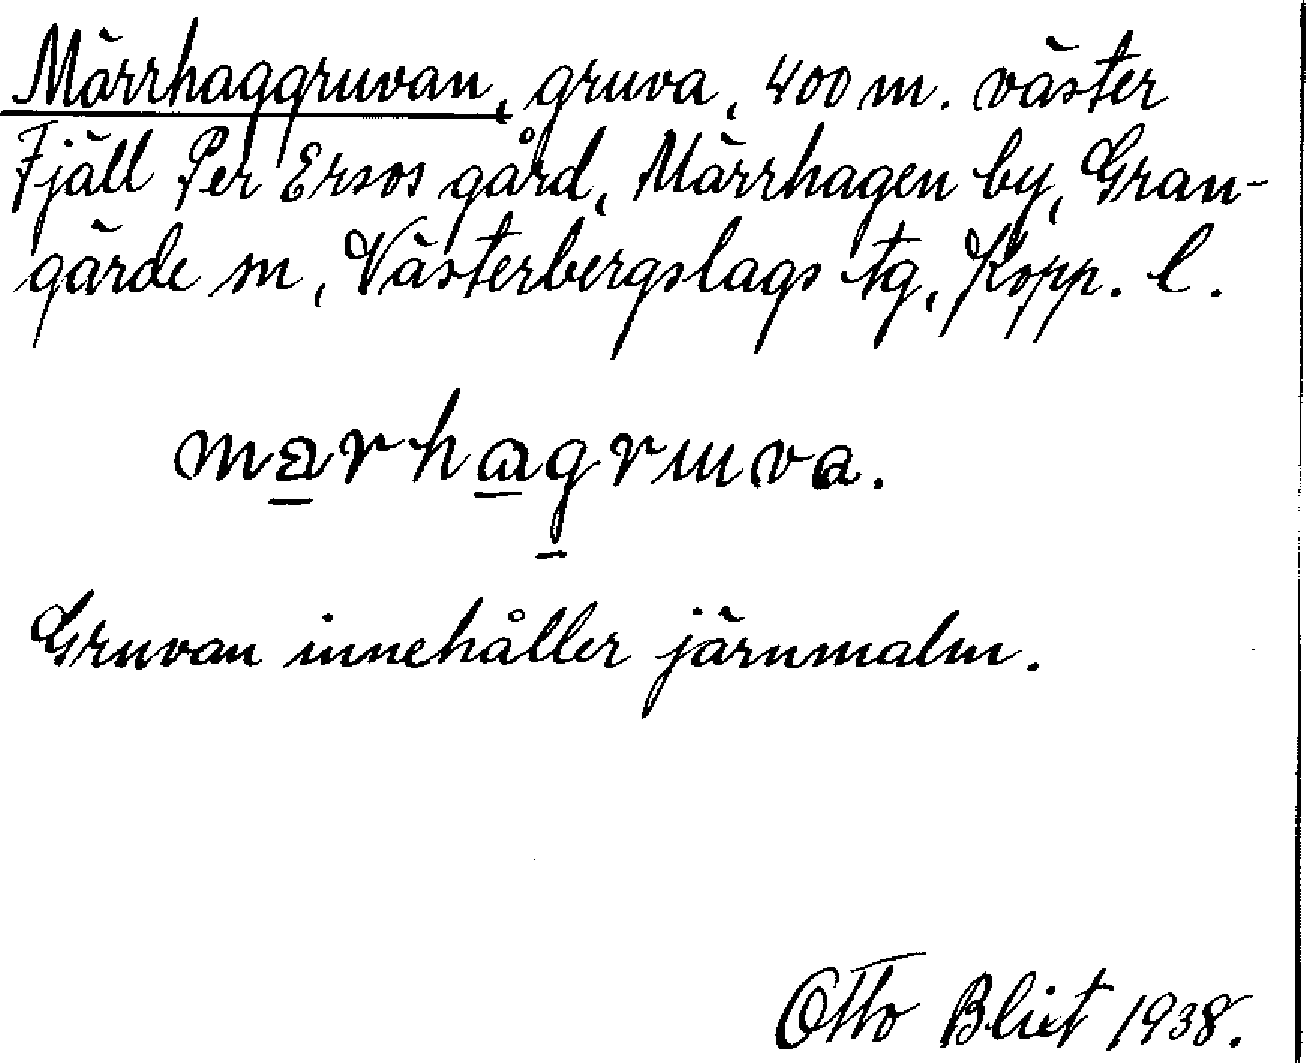 Märrhaggruvan, gruva, 400 m. väster
Fjäll Per Ersos gård, Märrhagen by, Gran-
gärde sn, Västerbergslags tg, Kopp. l.
marhagruva.
Gruvan innehåller järnmalm.
Otto Blixt 1938.